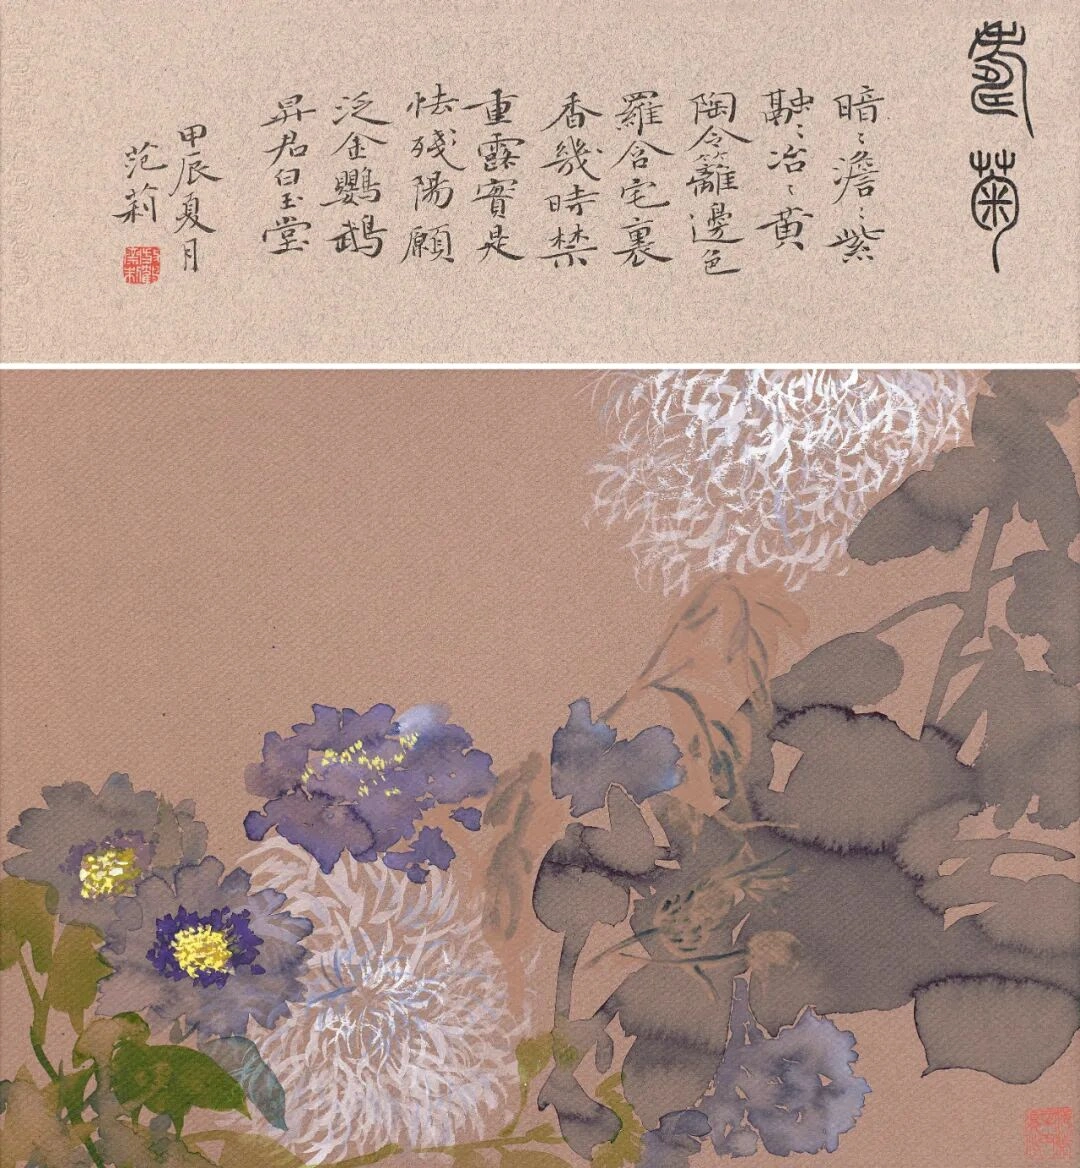 菊
暗〻澹〻紫
融〻冶〻黃
陶令籬邊色
羅含宅裏
香幾時禁
重露實是
怯殘陽願
泛金鸚鵡
昇君白玉堂
甲辰夏月
范莉